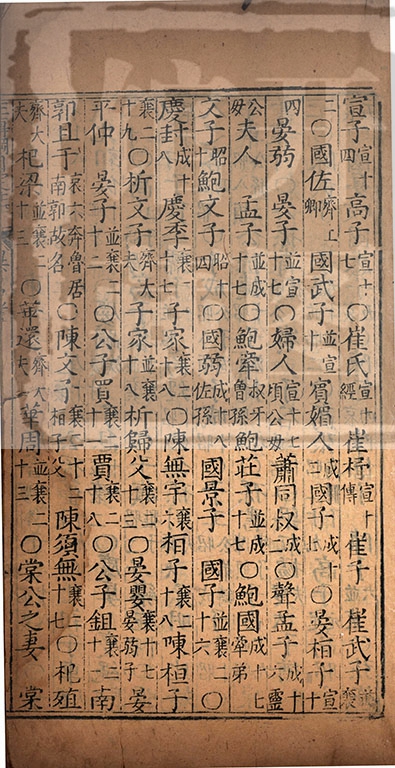 宣子宣十四高子宣十七○崔氏宣十經崔杼宣十傳崔子崔武子並襄
二○國佐齊上卿國武子並宣十賓媚人成二國子成十七○晏桓子宣十
四晏弱晏子並宣十七○婦人宣十七頃公母蕭同叔成二○聲孟子成十六靈
公母夫人孟子並成十七○鮑牽叔牙曾孫鮑莊子並成十七○鮑國牽弟成十七
文子昭十鮑文子昭十四○國弱成十八佐孫國景子國子並襄二十六○
慶封成十八慶季襄二十七子家襄二十八○陳無宇襄六桓子襄二十八陳桓子
襄二十九○析文子齊大夫子家並襄十八析歸父襄二十三○晏嬰襄十七晏弱子晏
平仲晏子並襄二十二○公子買襄二十一賈襄二十八○公子鉏襄二十一南
郭且于哀六奔魯居南郭故名○陳文子襄二十二桓子父陳須無襄二十七○杞殖
齊大夫杞梁並襄二十三○華還齊大夫華周並襄二十三○棠公之妻棠